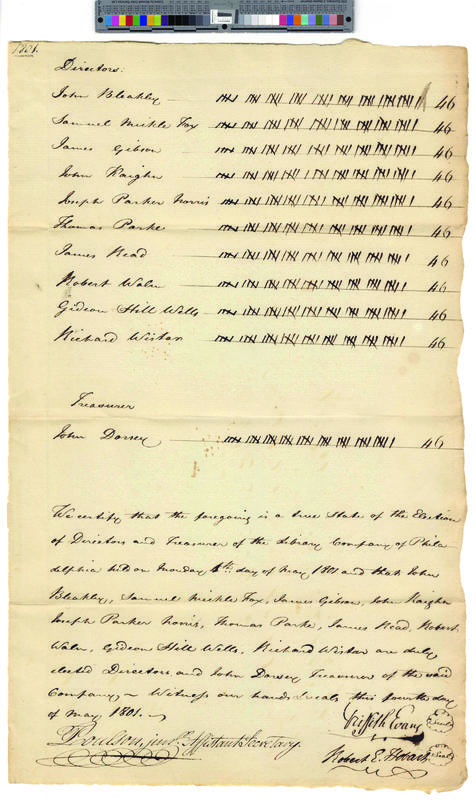 1801.
Directors:
John Bleakley 46
Samuel Mickle Fox 46
James Gibson 46
John Kaighn 46
Joseph Parker Norris 46
Thomas Parke 46
James Read 46
Robert Waln 46
Gideon Hill Wells 46
Richard Wistar 46
Treasurer
John Dorsey 46
We certify that the foregoing is a true State of the Election
of Directors and Treasurer of the Library Company of Phila
delphia held on Monday 4th: day of May 1801 and that John
Bleakley, Samuel Mickle Fox, James Gibson, John Kaighn
Joseph Parker Norris, Thomas Parke, James Read, Robert
Waln, Gideon Hill Wells, Richard Wistar are duly
elected Directors, and John Dorsey Treasurer of the said
Company,~ Witness our hands & seals this fourth day
of May 1801.
Griffith Evans Seal
Poulson, junr. Assistant Secretary.
Robert E. Hobart Seal